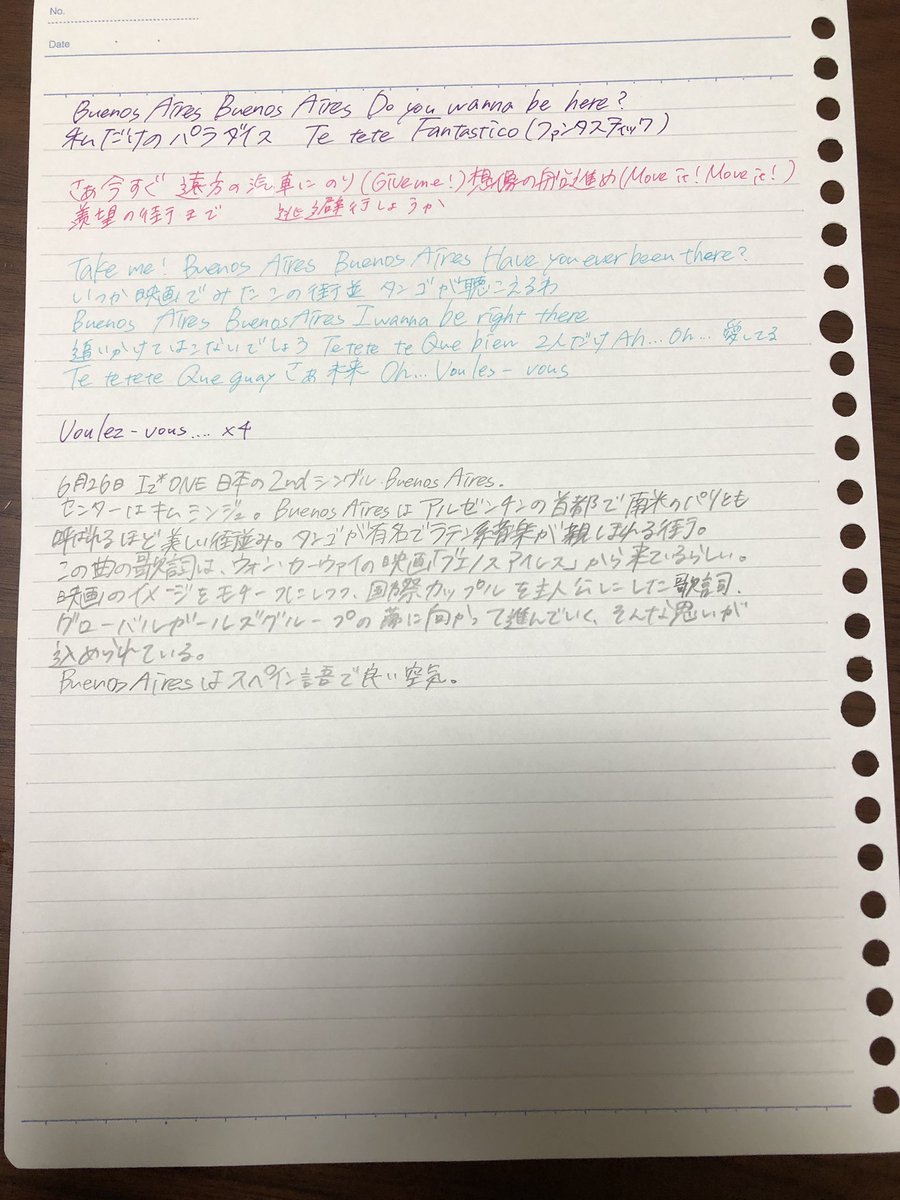 No.
Date
Buenos Aires Buenos Aires Do you wanna be here?
私だけのパラダイス Te tete Fantastico(ファンタスティック)
さあ今すぐ 遠方の汽車にのり(Give me!)想像の舟を進め(Move it! Move it!)
羨望の街まで 逃避行しようか
Take me! Buenos Aires Buenos Aires Have you ever been there?
いつか映画でみたこの街並 タンゴが聴こえるわ
Buenos Aires Buenos Aires I wanna be right there
追いかけてはこないでしょう Te tete te Que bien 2人だけ Ah... Oh... 愛してる
Te te tete Que guay さあ未来 Oh... Voules-vous
Voulez-vous.... ×4
6月26日 Iz*ONE 日本の2ndシングル Buenos Aires.
センターはキムミンジュ。Buenos Airesはアルゼンチンの首都で南米のパリとも
呼ばれるほど美しい街並み。タンゴが有名でラテン系音楽が親しまれる街。
この曲の歌詞は、ウォン・カーウァイの映画「ブエノスアイレス」から来ているらしい。
映画のイメージをモチーフにしつつ、国際カップルを主人公にした歌詞.
グローバルガールズグループの夢に向かって進んでいく、そんな思いが
込められている。
Buenos Airesはスペイン語で良い空気。